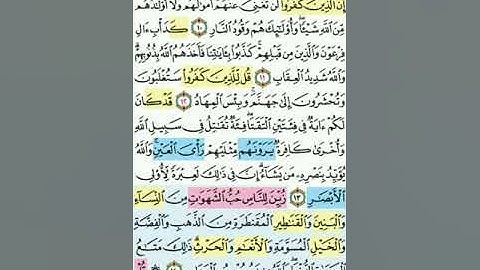 إِنَّ الَّذِينَ كَفَرُوا لَن تُغْنِيَ عَنْهُمْ أَمْوَالُهُمْ وَلَا أَوْلَادُهُم
مِّنَ اللَّهِ شَيْئًا وَأُولَٰئِكَ هُمْ وَقُودُ النَّارِ ١٠ كَدَأْبِ ءَالِ
فِرْعَوْنَ وَالَّذِينَ مِن قَبْلِهِمْ كَذَّبُوا بِـَٔايَاتِنَا فَأَخَذَهُمُ اللَّهُ بِذُنُوبِهِمْ
وَاللَّهُ شَدِيدُ الْعِقَابِ ١١ قُل لِّلَّذِينَ كَفَرُوا سَتُغْلَبُونَ
وَتُحْشَرُونَ إِلَىٰ جَهَنَّمَ وَبِئْسَ الْمِهَادُ ١٢ قَدْ كَانَ
لَكُمْ ءَايَةٌ فِي فِئَتَيْنِ الْتَقَتَا فِئَةٌ تُقَاتِلُ فِي سَبِيلِ اللَّهِ
وَأُخْرَىٰ كَافِرَةٌ يَرَوْنَهُم مِّثْلَيْهِمْ رَأْيَ الْعَيْنِ وَاللَّهُ
يُؤَيِّدُ بِنَصْرِهِ مَن يَشَاءُ إِنَّ فِي ذَٰلِكَ لَعِبْرَةً لِّأُولِي
الْأَبْصَارِ ١٣ زُيِّنَ لِلنَّاسِ حُبُّ الشَّهَوَاتِ مِنَ النِّسَاءِ
وَالْبَنِينَ وَالْقَنَاطِيرِ الْمُقَنطَرَةِ مِنَ الذَّهَبِ وَالْفِضَّةِ
وَالْخَيْلِ الْمُسَوَّمَةِ وَالْأَنْعَامِ وَالْحَرْثِ ذَٰلِكَ مَتَاعُ